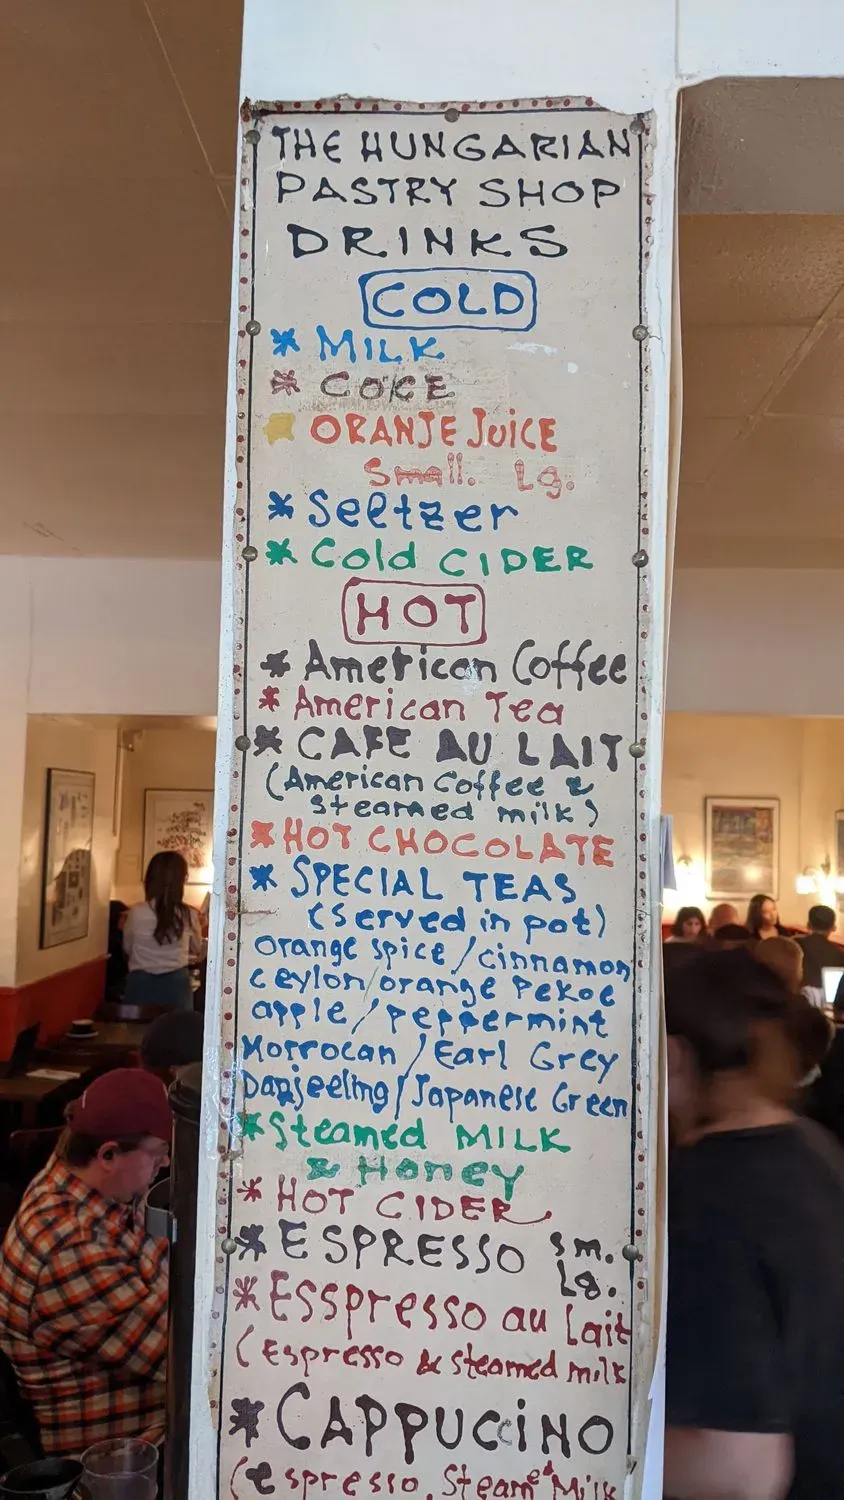 THE HUNGARIAN
PASTRY SHOP
DRINKS
COLD
* MILK
* COKE
ORANJE JUiCE
Small. Lg.
* Seltzer
* Cold CIDER
HOT
* American Coffee
* American Tea
* CAFE AU LAIT
(American Coffee &
Steamed milk)
* HOT CHOCOLATE
* SPECIAL TEAS
(served in pot)
orange spice / cinnamon
ceylon/orange Pekoe
apple / peppermint
Morrocan / Earl Grey
Darjeeling / Japanese Green
* Steamed MILK
& Honey
* HOT CIDER
* ESPRESSO sm.
Lg.
* Esspresso au lait
(Espresso & steamed milk
* CAPPUCciNO
(espresso, Steamed Milk